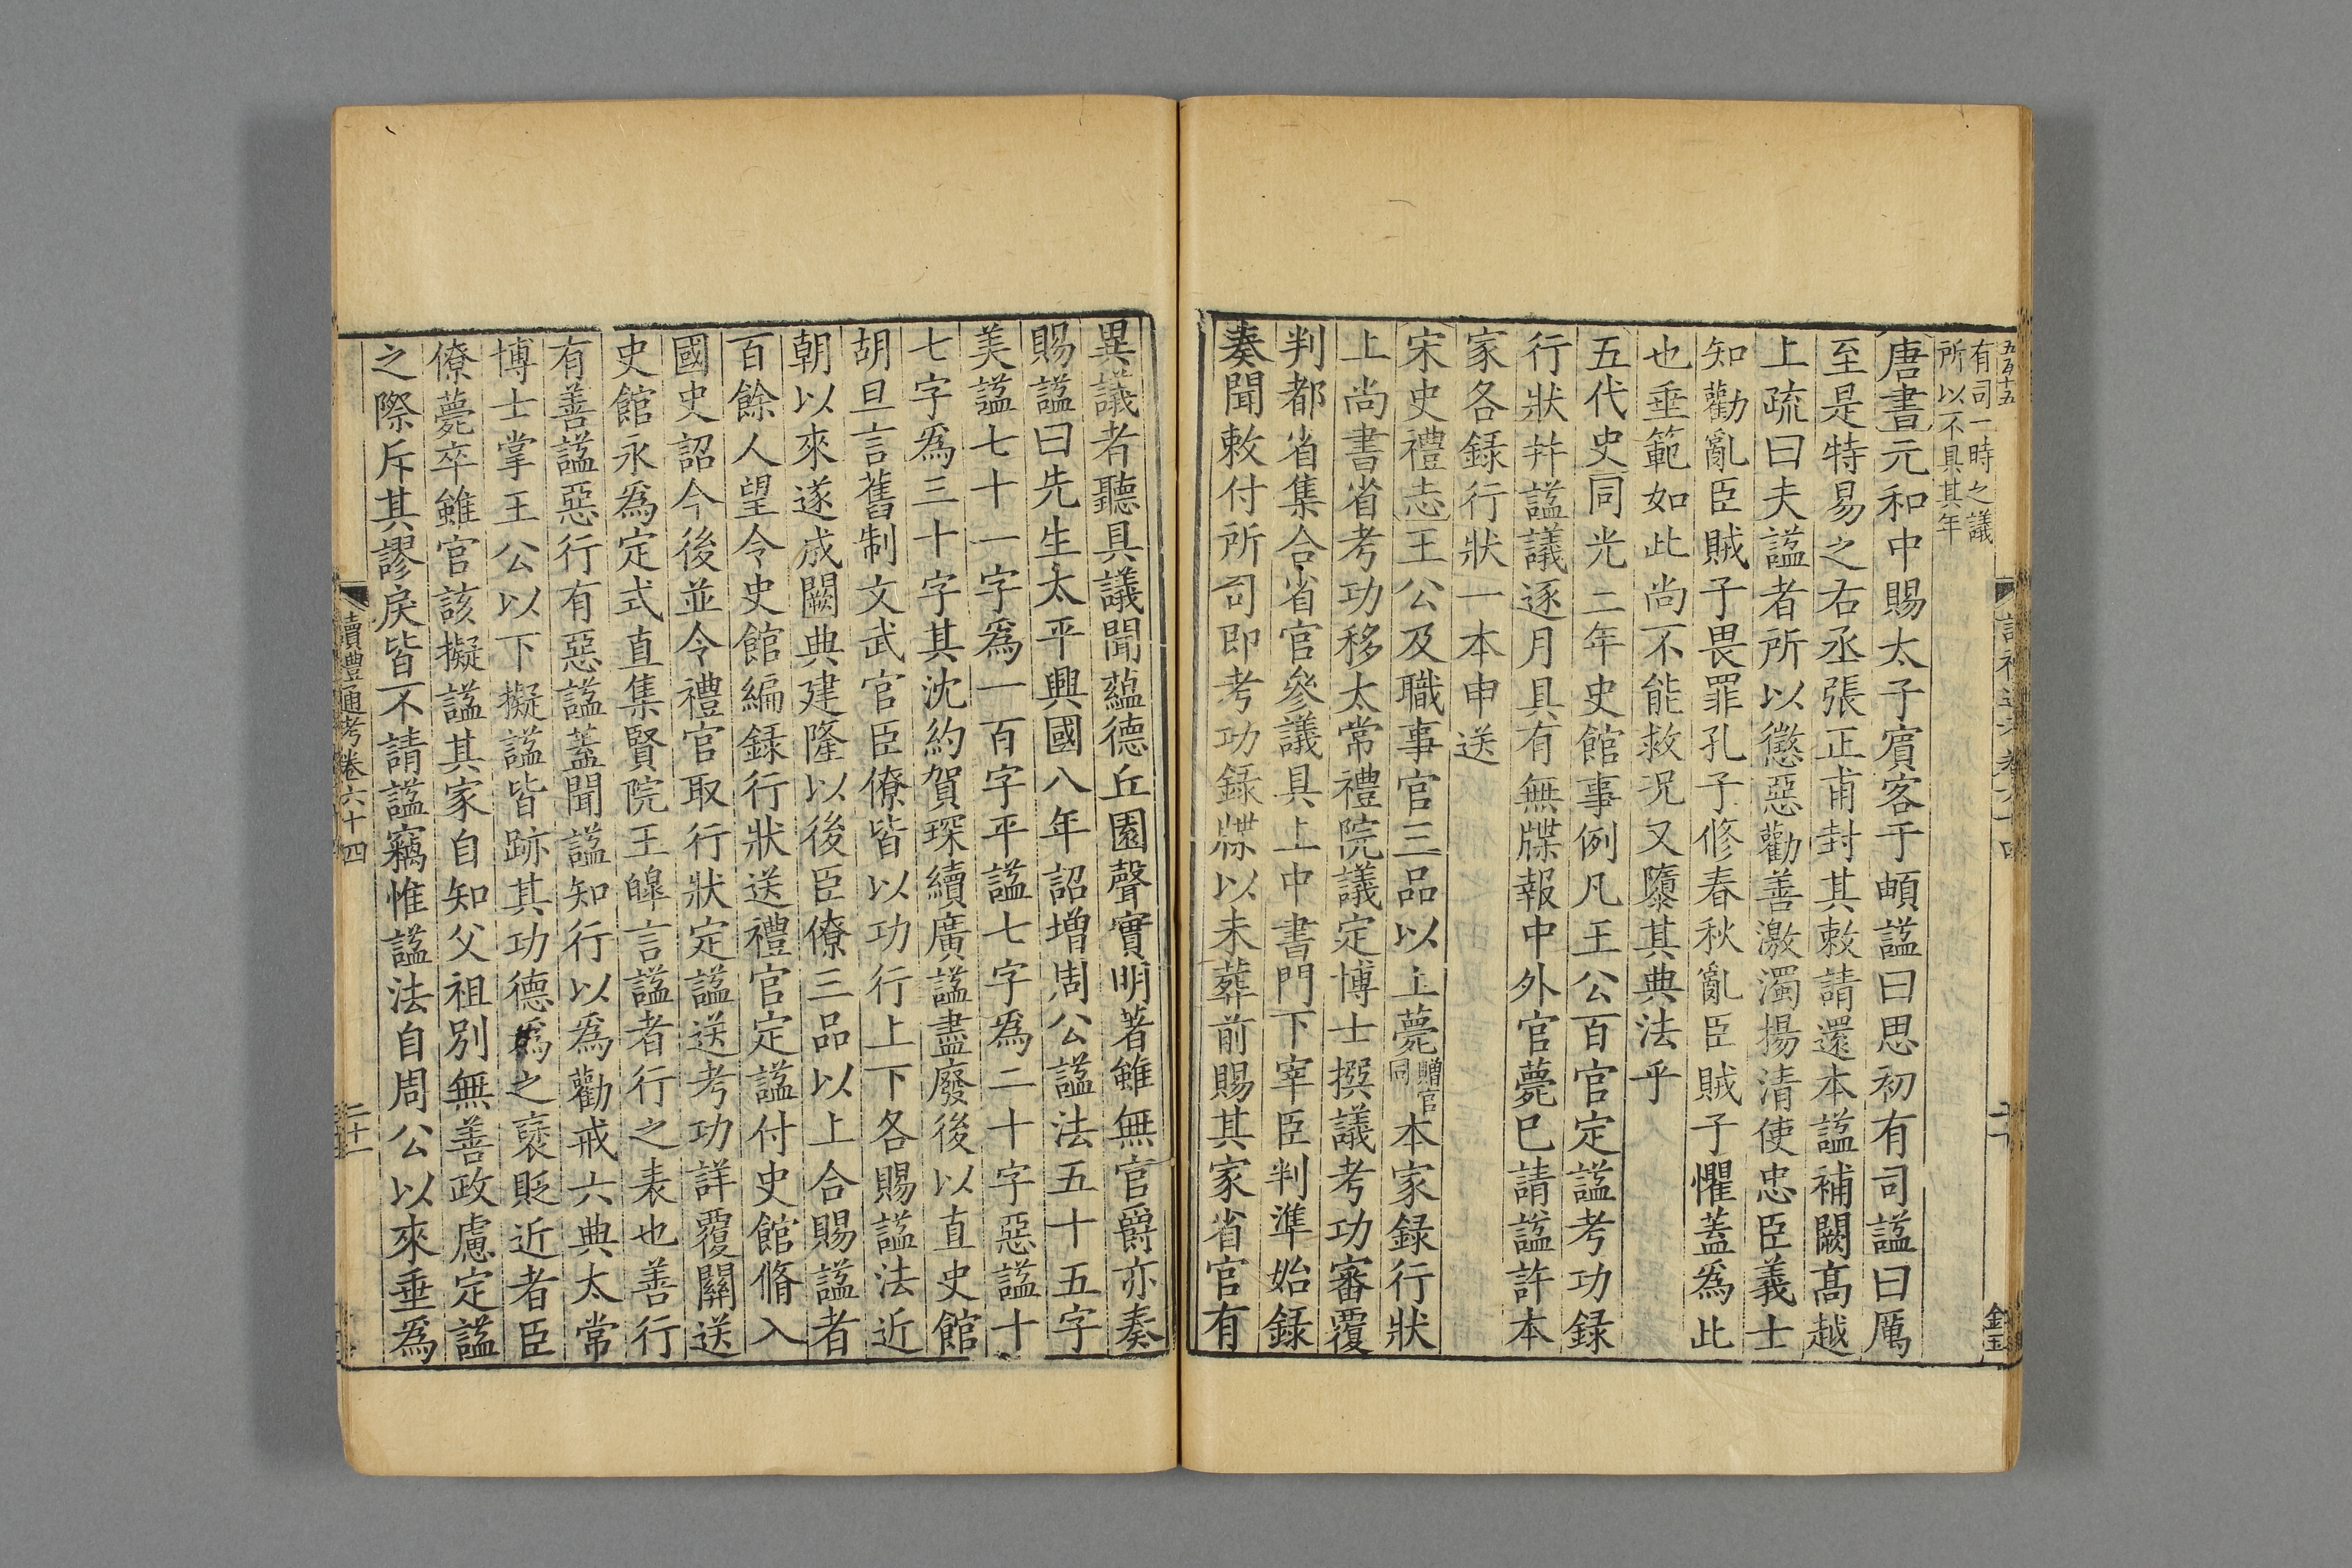 有司一時之議
所以不具其年
唐書元和中賜太子賓客于頔諡曰思初有司諡曰厲
至是特易之右丞張正甫封其敕請還本諡補闕高越
上疏曰夫諡者所以懲惡勸善激濁揚清使忠臣義士
知勸亂臣賊子畏罪孔子修春秋亂臣賊子懼蓋爲此
也垂範如此尚不能救况又隳其典法乎
五代史同光二年史館事例凡王公百官定諡考功錄
行狀幷諡議逐月具有無牒報中外官薨已請諡許本
家各錄行狀一本申送
宋史禮志王公及職事官三品以上薨贈官同本家錄行狀
上尚書省考功移太常禮院議定博士撰議考功審覆
判都省集合省官參議具上中書門下宰臣判準始錄
奏聞敕付所司即考功錄牒以未葬前賜其家省官有
異議者聽具議聞蘊德丘園聲實明著雖無官爵亦奏
賜諡曰先生太平興國八年詔增周公諡法五十五字
美諡七十一字爲一百字平諡七字爲二十字惡諡十
七字爲三十字其沈約賀琛續廣諡盡廢後以直史館
胡旦言舊制文武官臣僚皆以功行上下各賜諡法近
朝以來遂成闕典建隆以後臣僚三品以上合賜諡者
百餘人望令史館編錄行狀送禮官定諡付史館脩入
國史詔今後並令禮官取行狀定諡送考功詳覆關送
史館永爲定式直集賢院王皞言諡者行之表也善行
有善諡惡行有惡諡蓋聞諡知行以爲勸戒六典太常
博士掌王公以下擬諡皆跡其功德爲之襃貶近者臣
僚薨卒雖官該擬諡其家自知父祖別無善政慮定諡
之際斥其謬戾皆不請諡竊惟諡法自周公以來垂爲
續禮通考卷六十四
二十一